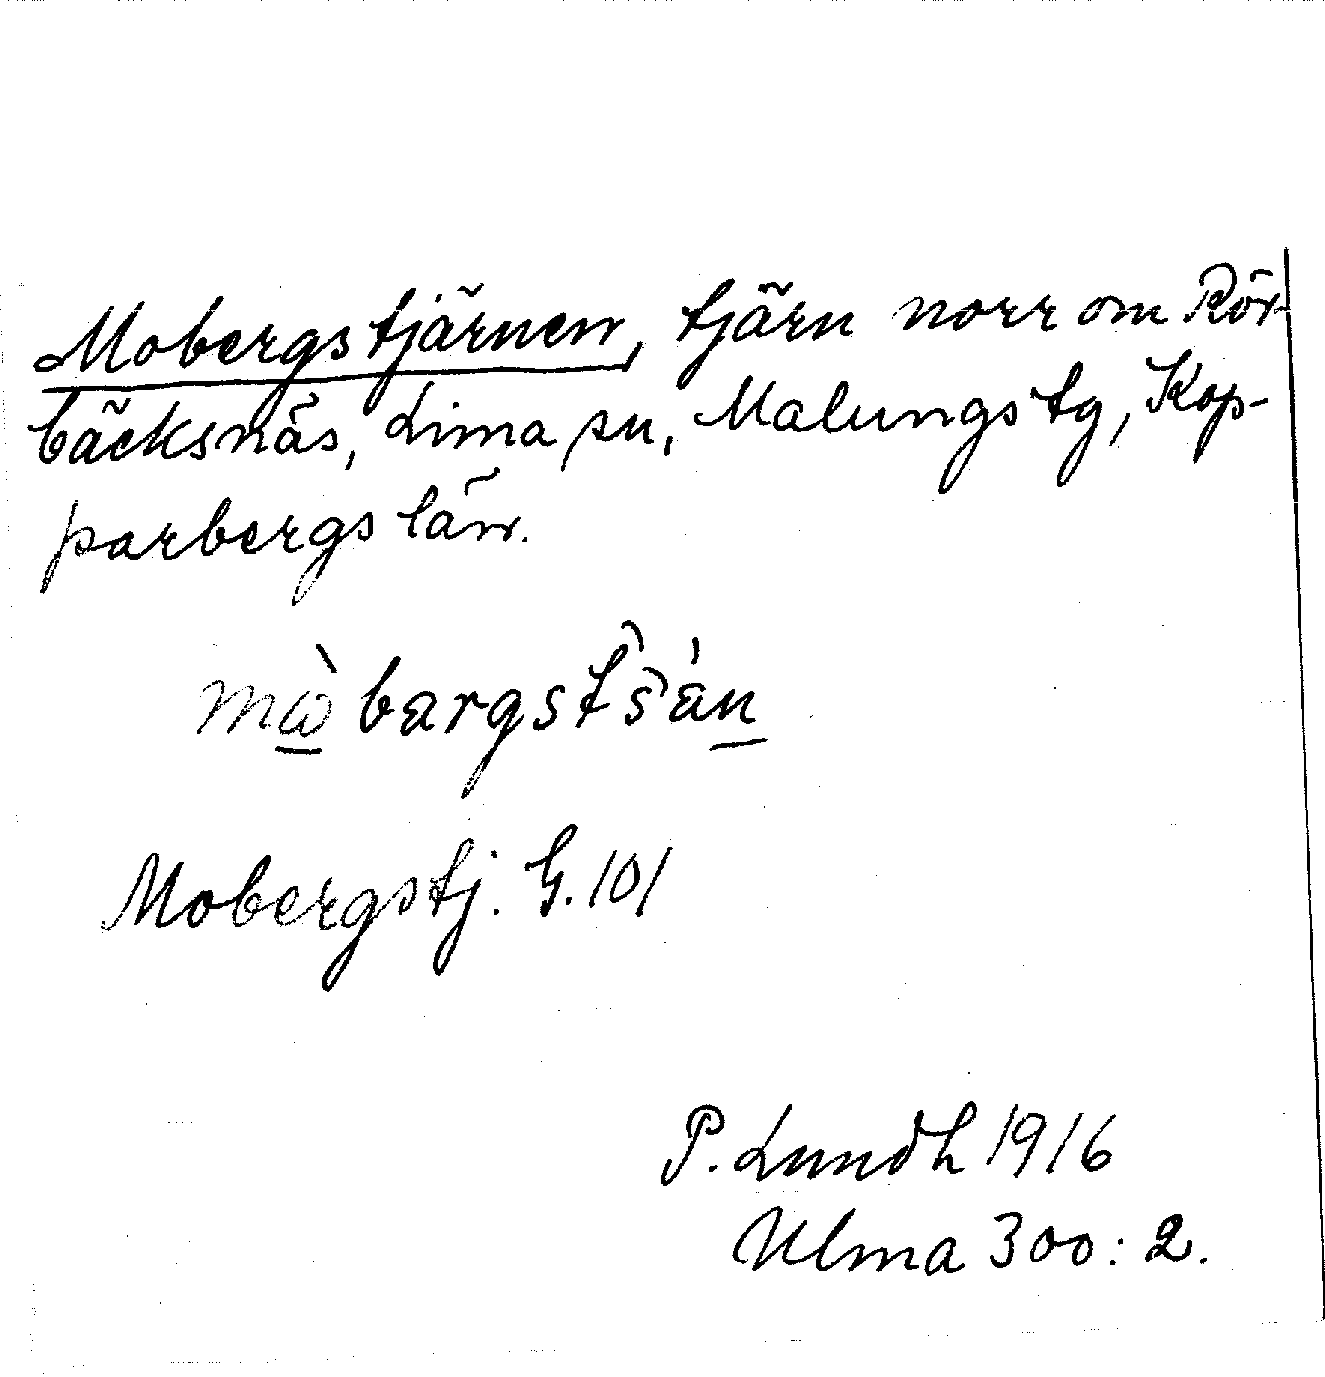 Mobergstjärnen, tjärn norr om Rör-
bäcksnäs, Lima sn, Malungs tg, Kop-
parbergs län.
mὼbargstšán
Mobergstj. G. 101
P. Lundh 1916
Ulma 300: 2.